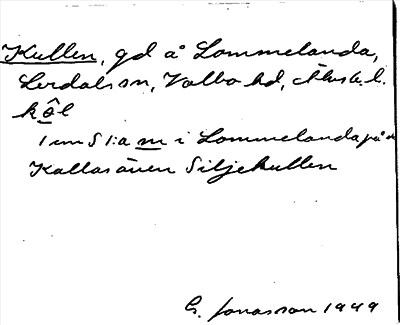 Kullen, gd å Lommelanda,
Lerdals sn, Valbo hd, Älvsb. l.
kôl
1 mm S l:a m i Lommelanda på
Kallas även Siljekullen
G. Jonasson 1949